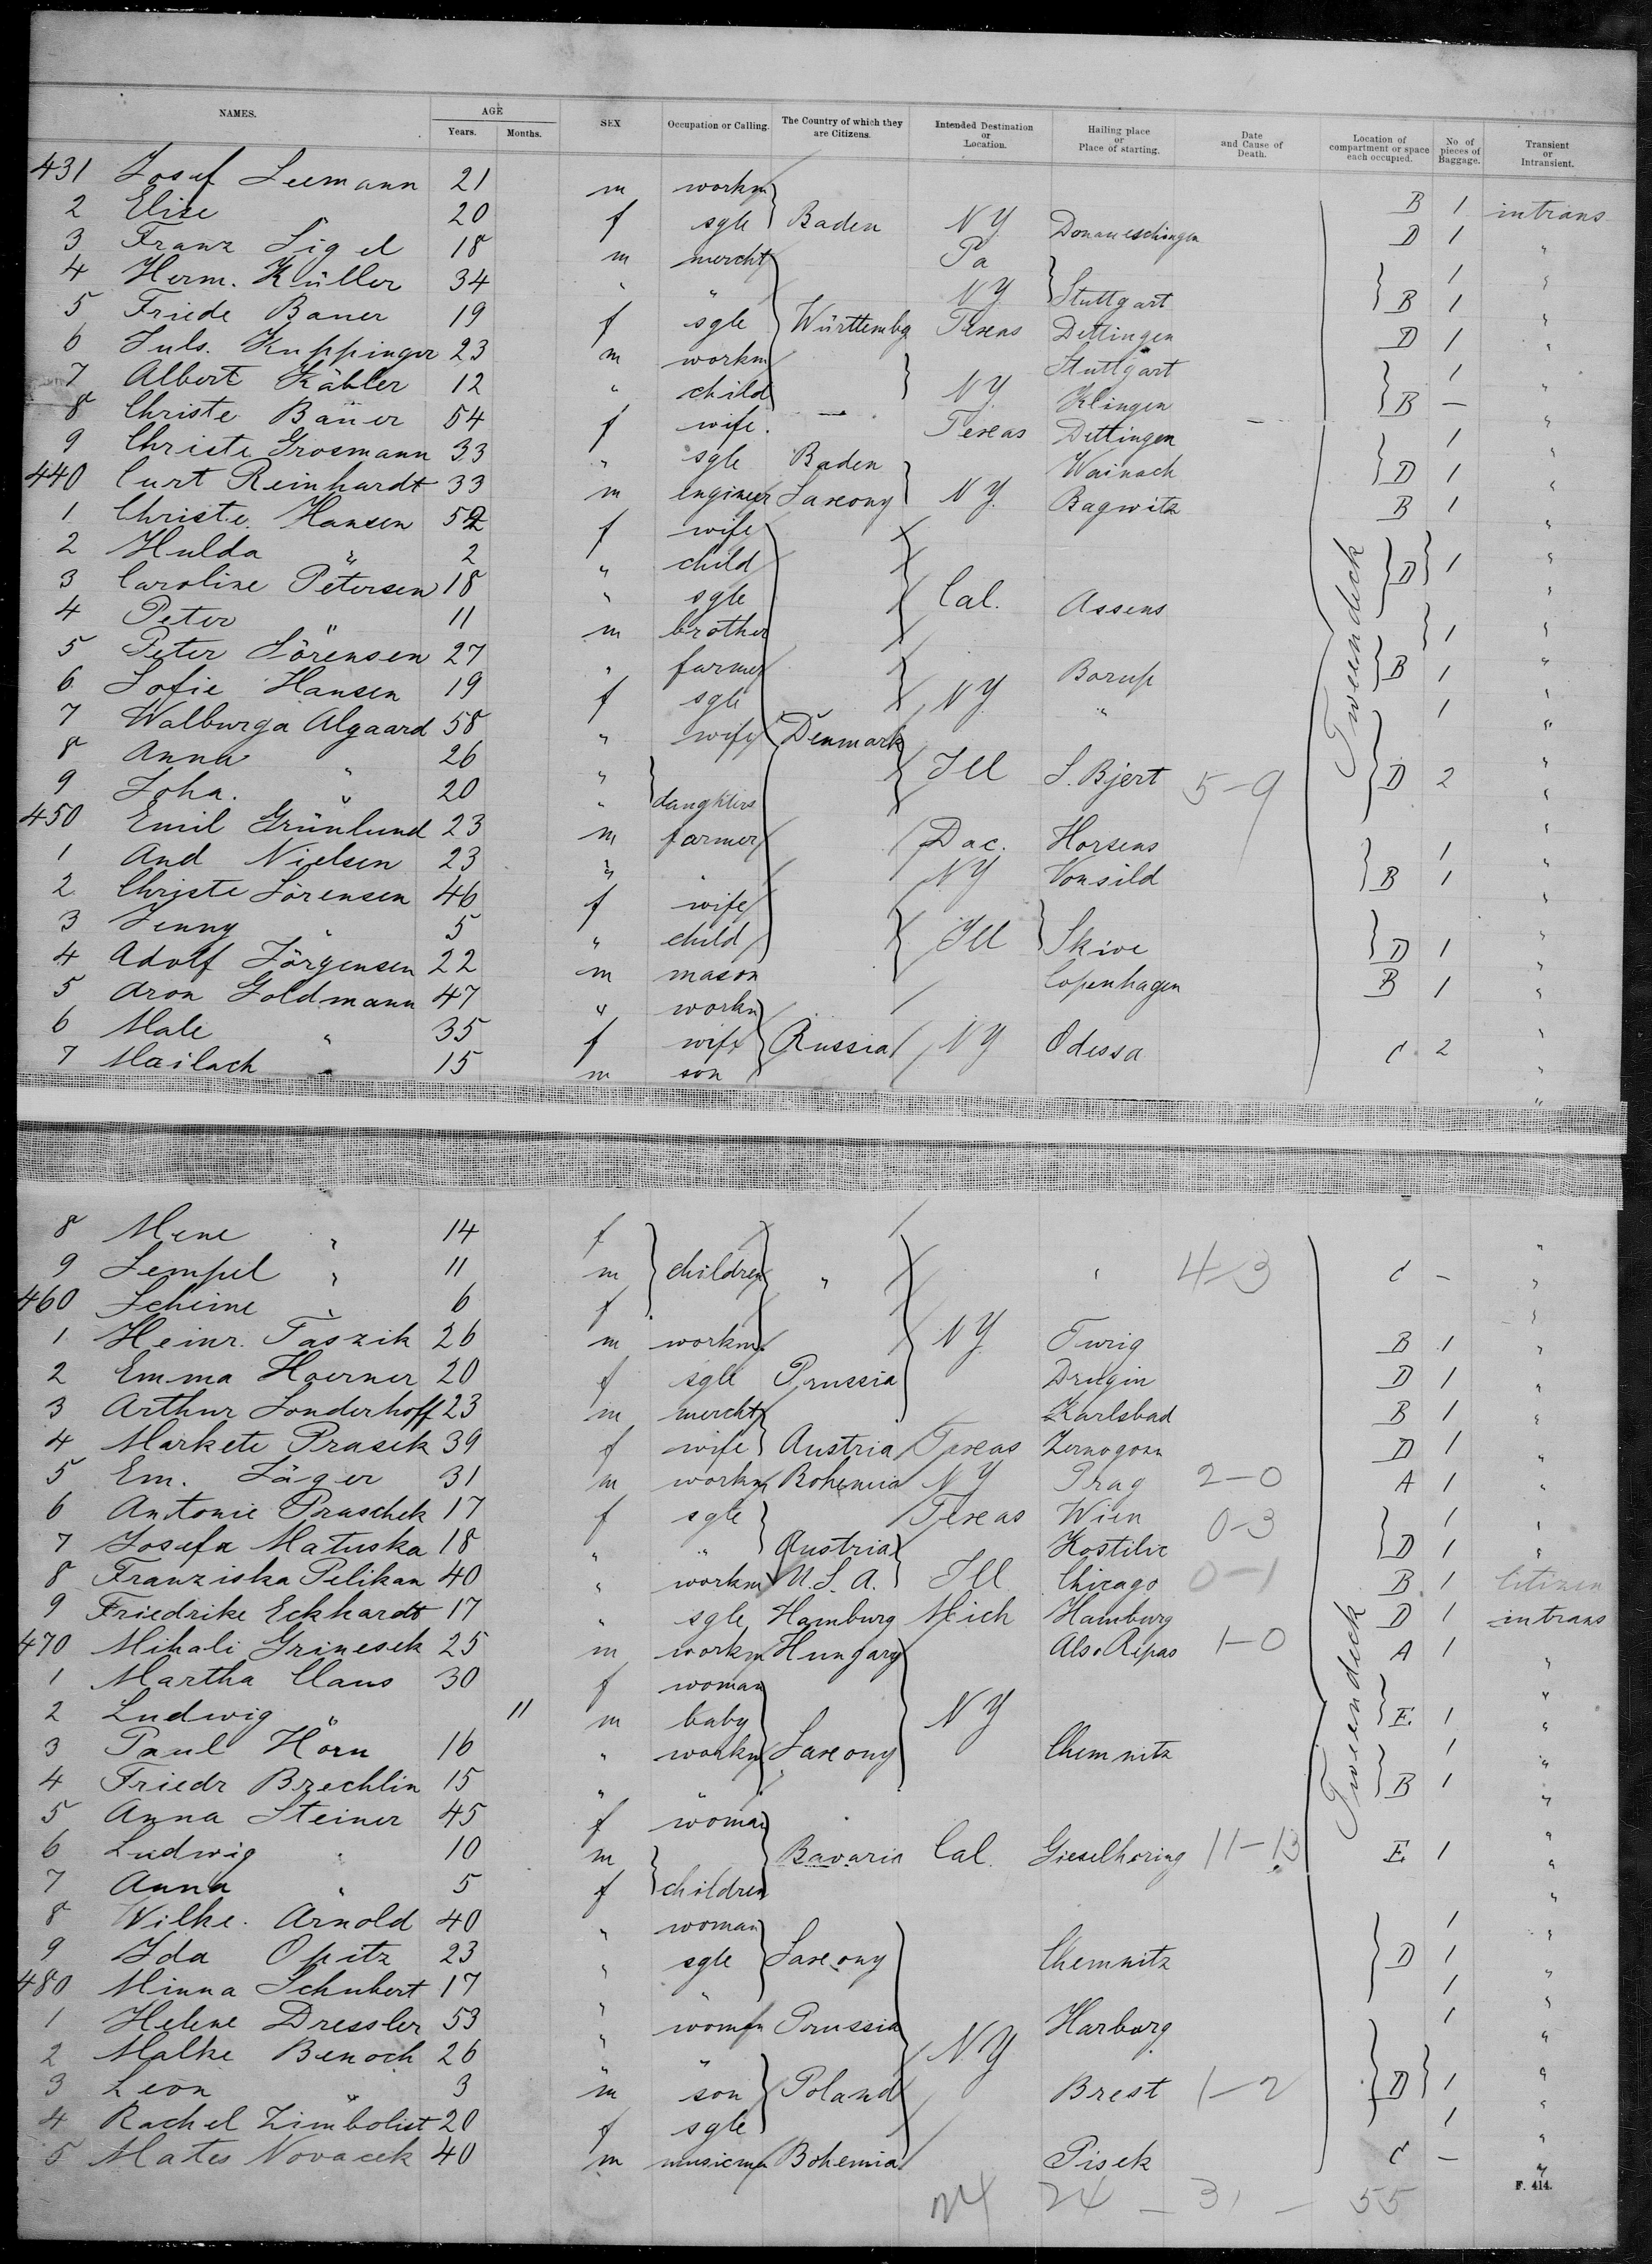 NAMES. AGE Years. Months. SEX Occupation or Calling. The Country of which they are Citizens. Intended Destination or Location. Hailing place or Place of starting. Date and Cause of Death. Location of compartment or space each occupied. No of pieces of Baggage. Transient or Intransient.
431 Josef Leemann 21 m workm B 1 intrans
2 Elise 20 f sgle Baden NY Donaueschingen D 1 "
3 Franz Sigel 18 m mercht Pa 1 "
4 Herm. Küller 34 " " NY Stuttgart B 1 "
5 Friede Bauer 19 f sgle Württembg Texas Dettingen D 1 "
6 Juls. Kuppinger 23 m workm Stuttgart 1 "
7 Albert Kähler 12 " child NY Klingen B — "
8 Christe Bauer 54 f wife Texas Dettingen 1 "
9 Christe Grosmann 33 " sgle Baden Wainach D 1 "
440 Curt Reinhardt 33 m engineer Saxony NY Bagwitz B 1 "
1 Christe. Hansen 52 f wife "
2 Hulda " 2 " child D 1 "
3 Caroline Petersen 18 " sgle Cal. Assens "
4 Peter " 11 m brother 1 "
5 Peter Sörensen 27 " farmer Borup B 1 "
6 Sofie Hansen 19 f sgle NY " 1 "
7 Walburga Algaard 58 " wife Denmark "
8 Anna " 26 " Ill S. Bjert 5-9 D 2 "
9 Joha. " 20 " daughters "
450 Emil Grünlund 23 m farmer Dac. Horsens 1 "
1 And Nielsen 23 " " NY Vonsild B 1 "
2 Christe Sörensen 46 f wife "
3 Jenny " 5 " child Ill Skive D 1 "
4 Adolf Jörgensen 22 m mason Copenhagen B 1 "
5 Aron Goldmann 47 " workm "
6 Male " 35 f wife Russia NY Odessa C 2 "
7 Mailach " 15 m son "
8 Mene " 14 f "
9 Sempel " 11 m children " " 4-3 C — "
460 Scheine " 6 f "
1 Heinr. Taszik 26 m workm. NY Turig B 1 "
2 Emma Hoerner 20 f sgle Prussia Drugin D 1 "
3 Arthur Sonderhoff 23 m mercht Karlsbad B 1 "
4 Markete Prasek 39 f wife Austria Texas D 1 "
5 Em. Jäger 31 m workm Bohemia NY Prag 2-0 A 1 "
6 Antonie Praschek 17 f sgle Texas Wien 0-3 1 "
7 Josefa Matuska 18 " " Austria Kostilic D 1 "
8 Franziska Pelikan 40 " workm U.S.A. Ill Chicago 0-1 B 1 Citizen
9 Friedrike Eckhardt 17 " sgle Hamburg Mich Hamburg D 1 intrans
470 Mihali Grinesek 25 m workm Hungary Also Repas 1-0 A 1 "
1 Martha Claus 30 f woman "
2 Ludwig " 11 m baby NY E. 1 "
3 Paul Horn 16 " workm Saxony Chemnitz 1 "
4 Friedr Brechlin 15 " " B 1 "
5 Anna Steiner 45 f woman "
6 Ludwig " 10 m Bavaria Cal. Gieselhoring 11-13 E. 1 "
7 Anna " 5 f children "
8 Wilke. Arnold 40 " woman 1 "
9 Ida Opitz 23 " sgle Saxony Chemnitz D 1 "
480 Minna Schubert 17 " " 1 "
1 Helene Dressler 53 " woman Prussia Harburg 1 "
2 Malke Benoch 26 " " NY "
3 Leon " 3 m son Poland Brest 1-2 D 1 "
4 Rachel Zimbolist 20 f sgle 1 "
5 Mates Novacek 40 m musicman Bohemia Pisek C — "
Tweendeck
Tweendeck
24 24 — 31 — 55
F. 414.